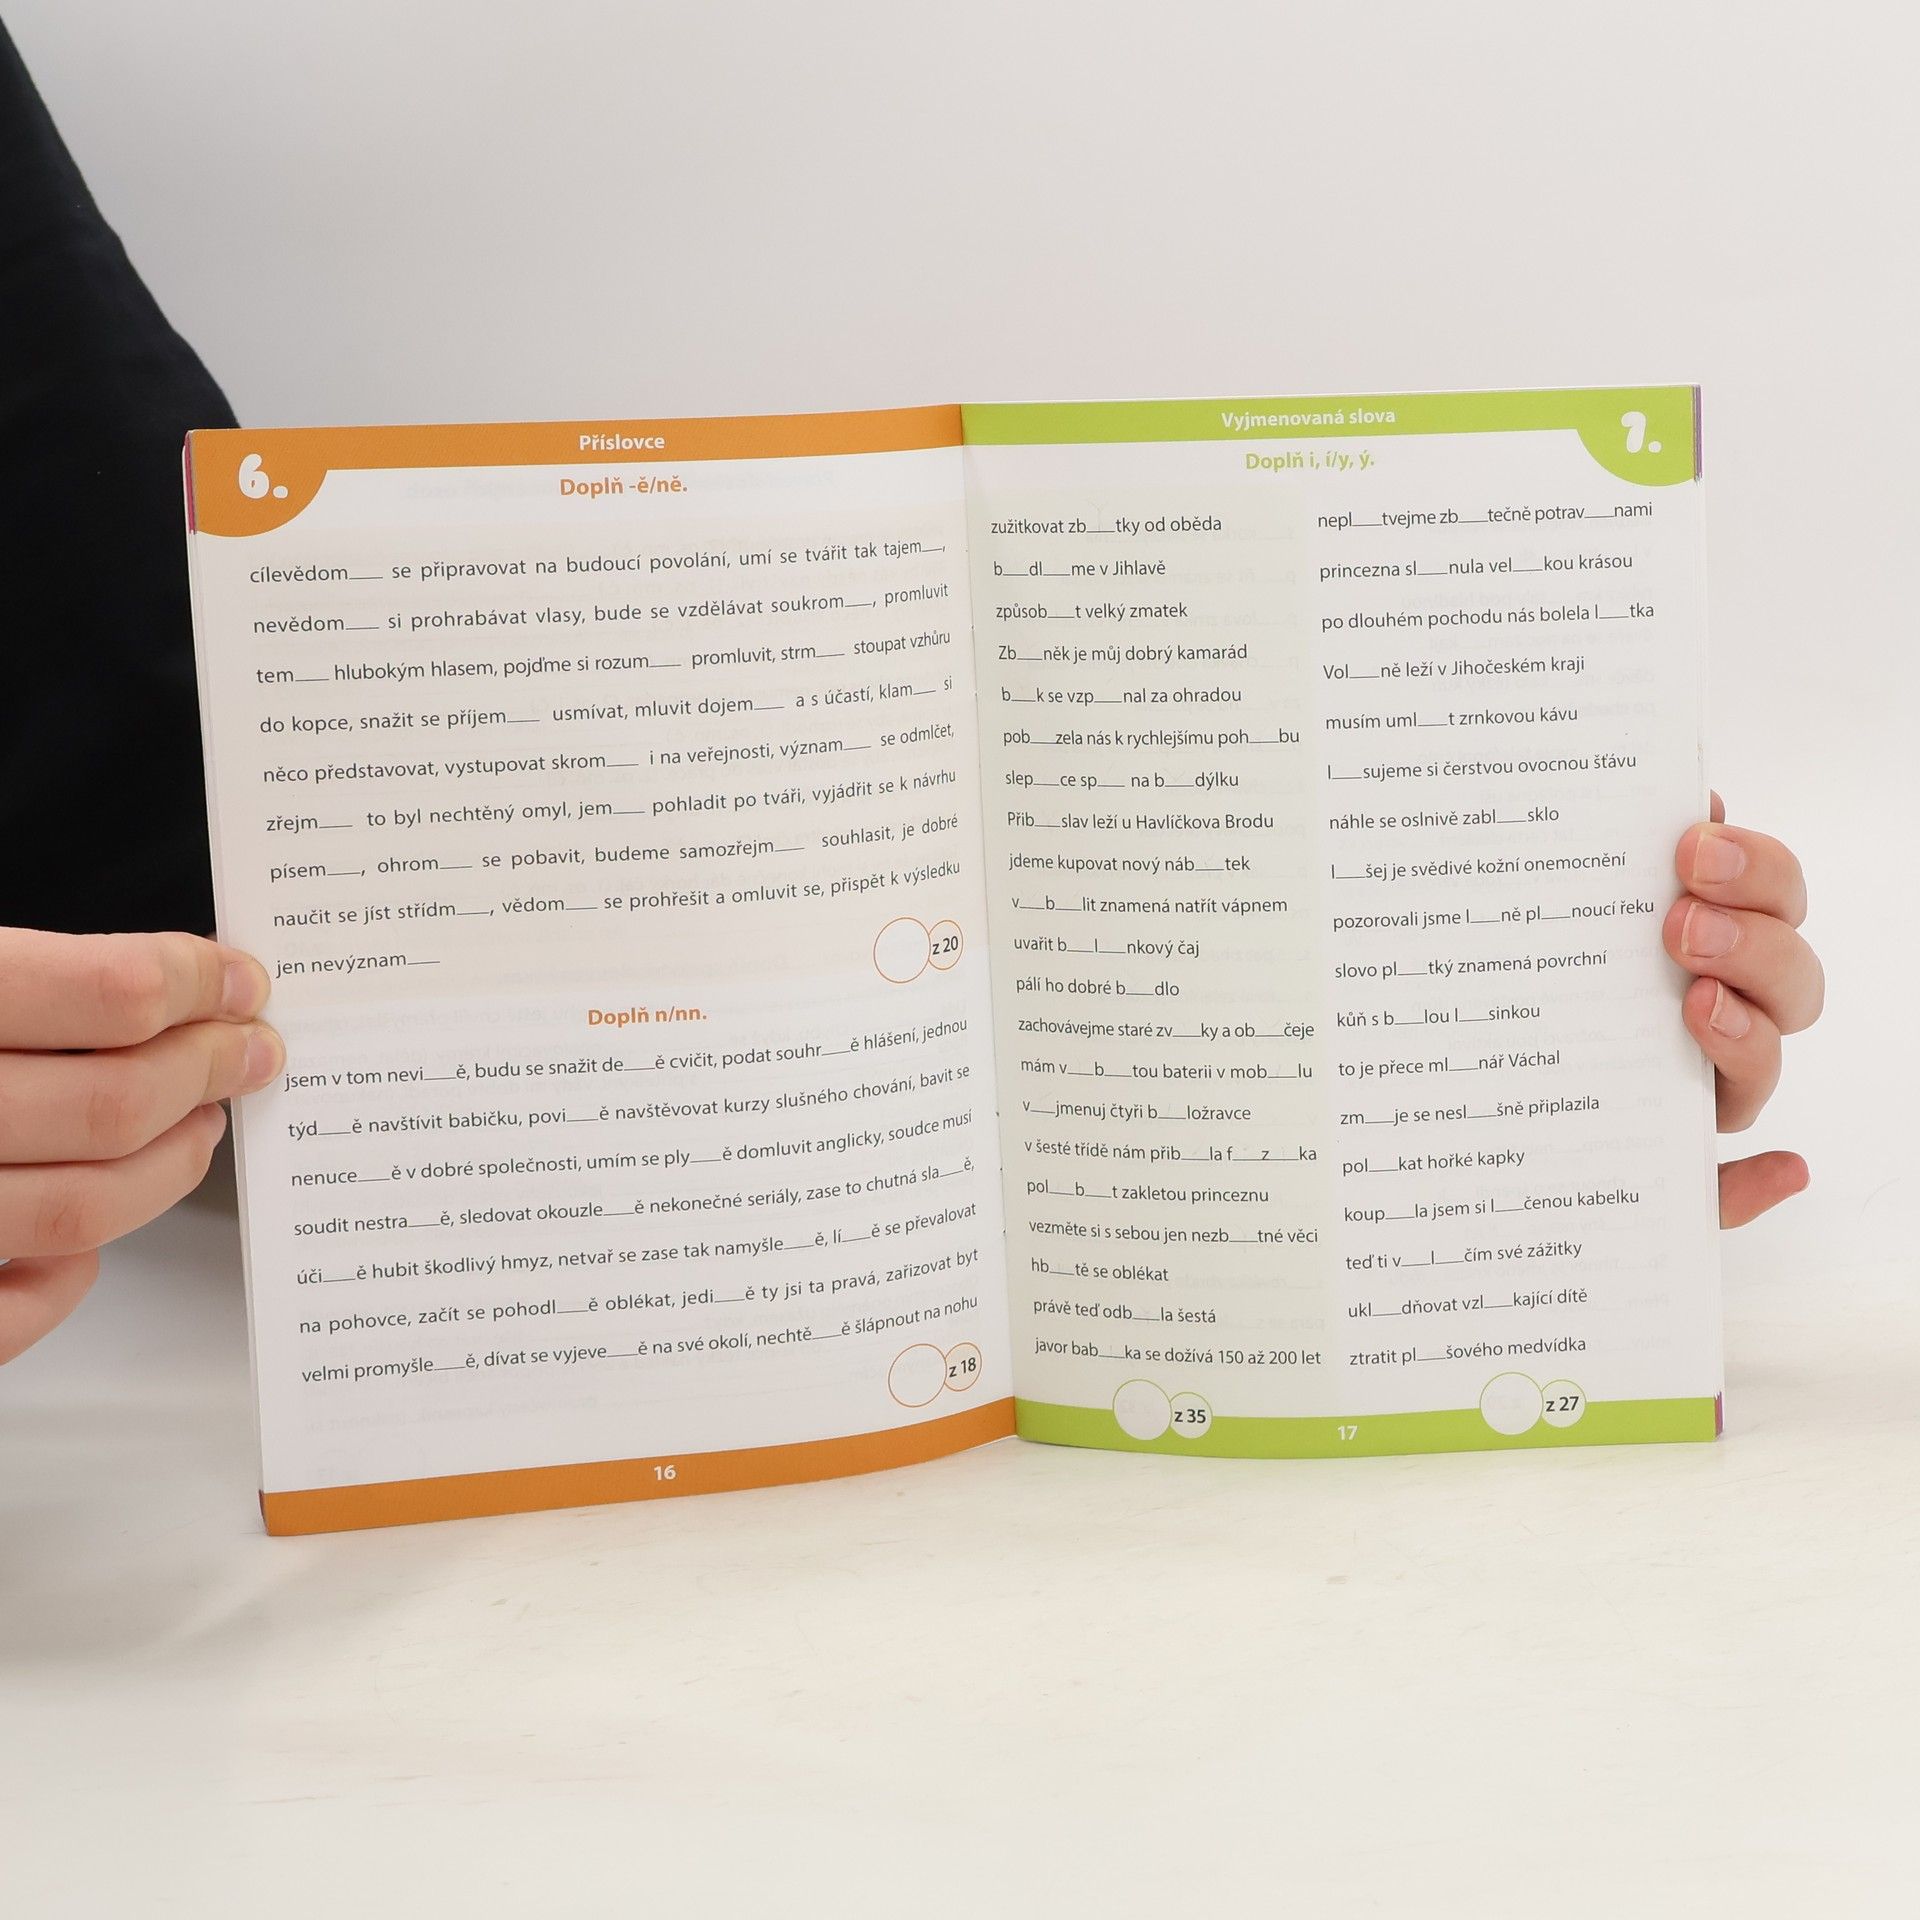 6.
Příslovce
Doplň -ě/ně.
cílevědom___ se připravovat na budoucí povolání, umí se tvářit tak tajem___,
nevědom___ si prohrabávat vlasy, bude se vzdělávat soukrom___, promluvit
tem___ hlubokým hlasem, pojďme si rozum___ promluvit, strm___ stoupat vzhůru
do kopce, snažit se příjem___ usmívat, mluvit dojem___ a s účastí, klam___ si
něco představovat, vystupovat skrom___ i na veřejnosti, význam___ se odmlčet,
zřejm___ to byl nechtěný omyl, jem___ pohladit po tváři, vyjádřit se k návrhu
písem___, ohrom___ se pobavit, budeme samozřejm___ souhlasit, je dobré
naučit se jíst střídm___, vědom___ se prohřešit a omluvit se, přispět k výsledku
jen nevýznam___
z 20
Doplň n/nn.
jsem v tom nevi___ě, budu se snažit de___ě cvičit, podat souhr___ě hlášení, jednou
týd___ě navštívit babičku, povi___ě navštěvovat kurzy slušného chování, bavit se
nenuce___ě v dobré společnosti, umím se ply___ě domluvit anglicky, soudce musí
soudit nestra___ě, sledovat okouzle___ě nekonečné seriály, zase to chutná sla___ě,
úči___ě hubit škodlivý hmyz, netvař se zase tak namyšle___ě, lí___ě se převalovat
na pohovce, začít se pohodl___ě oblékat, jedi___ě ty jsi ta pravá, zařizovat byt
velmi promyšle___ě, dívat se vyjeve___ě na své okolí, nechtě___ě šlápnout na nohu
z 18
16
Vyjmenovaná slova
7.
Doplň i, í/y, ý.
zužitkovat zb___tky od oběda
b___dl___me v Jihlavě
způsob___t velký zmatek
Zb___něk je můj dobrý kamarád
b___k se vzp___nal za ohradou
pob___zela nás k rychlejšímu poh___bu
slep___ce sp___ na b___dýlku
Přib___slav leží u Havlíčkova Brodu
jdeme kupovat nový náb___tek
v___b___lit znamená natřít vápnem
uvařit b___l___nkový čaj
pálí ho dobré b___dlo
zachovávejme staré zv___ky a ob___čeje
mám v___b___tou baterii v mob___lu
v___jmenuj čtyři b___ložravce
v šesté třídě nám přib___la f___z___ka
pol___b___t zakletou princeznu
vezměte si s sebou jen nezb___tné věci
hb___tě se oblékat
právě teď odb___la šestá
javor bab___ka se dožívá 150 až 200 let
z 35
nepl___tvejme zb___tečně potrav___nami
princezna sl___nula vel___kou krásou
po dlouhém pochodu nás bolela l___tka
Vol___ně leží v Jihočeském kraji
musím uml___t zrnkovou kávu
l___sujeme si čerstvou ovocnou šťávu
náhle se oslnivě zabl___sklo
l___šej je svědivé kožní onemocnění
pozorovali jsme l___ně pl___noucí řeku
slovo pl___tký znamená povrchní
kůň s b___lou l___sinkou
to je přece ml___nář Váchal
zm___je se nesl___šně připlazila
pol___kat hořké kapky
koup___la jsem si l___čenou kabelku
teď ti v___l___čím své zážitky
ukl___dňovat vzl___kající dítě
ztratit pl___šového medvídka
z 27
17